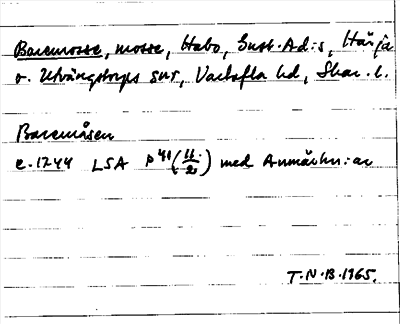 Baremosse, mosse, Habo, Gust. Ad:s, Härja
o. Utvängstorps snr, Vartofta hd, Skar. l.
Baremåsen
c. 1744 LSA P 41 (11/2) med Anmärkn:ar
T.N.B. 1965.